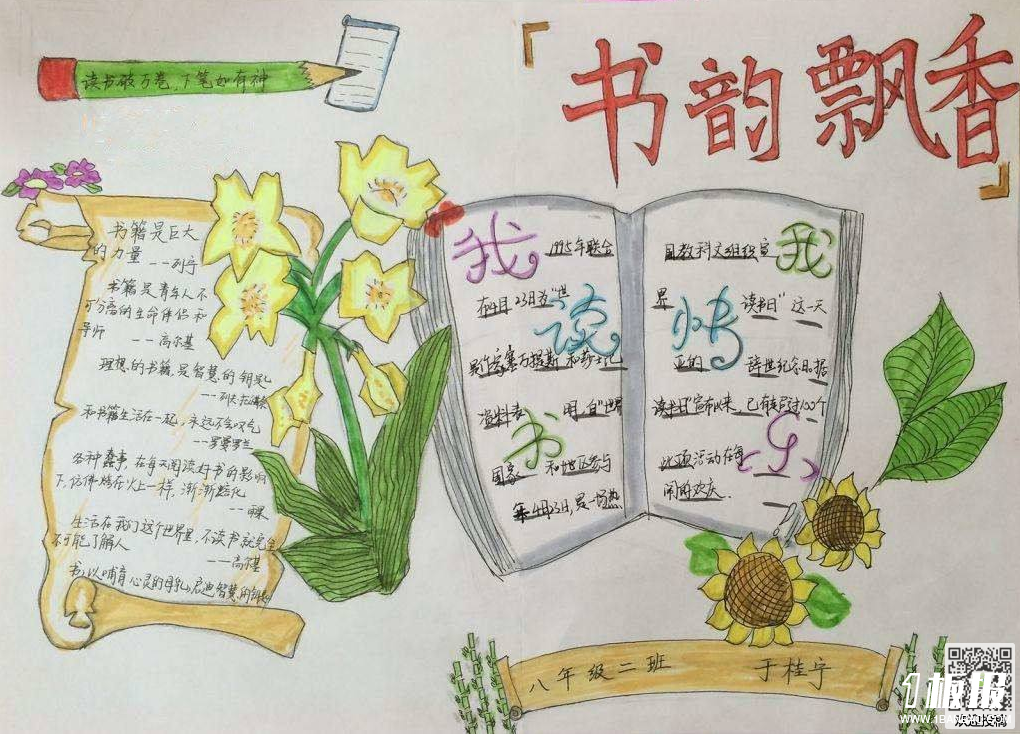 读书破万卷,下笔如有神
书韵飘香
书籍是巨大
的力量 ——列宁
书籍是青年人不
可分离的生命伴侣和
导师 ——高尔基
理想的书籍,是智慧的钥匙
——列夫托尔斯泰
和书籍生活在一起,永远不会叹气
——罗曼罗兰
各种蠢事,在每天阅读好书的影响
下,仿佛烤在火上一样,渐渐熔化
生活在我们这个世界里,不读书就完全
不可能了解人
——高尔基
我 1995年联合
在4月23日为“世
谈
和莎士比
资料表 明,自“世界
书
国家 和地区参与
4月23日,是一场热
国教科文组织宣 我
界 读书日”这一天
快
亚的 辞世纪念日据
读书日”宣布以来,已有超过100个
此项活动在每 乐
闹的欢庆.
八年级二班 于桂宁
1板报
WWW.1BANBAO.COM
欢迎投稿